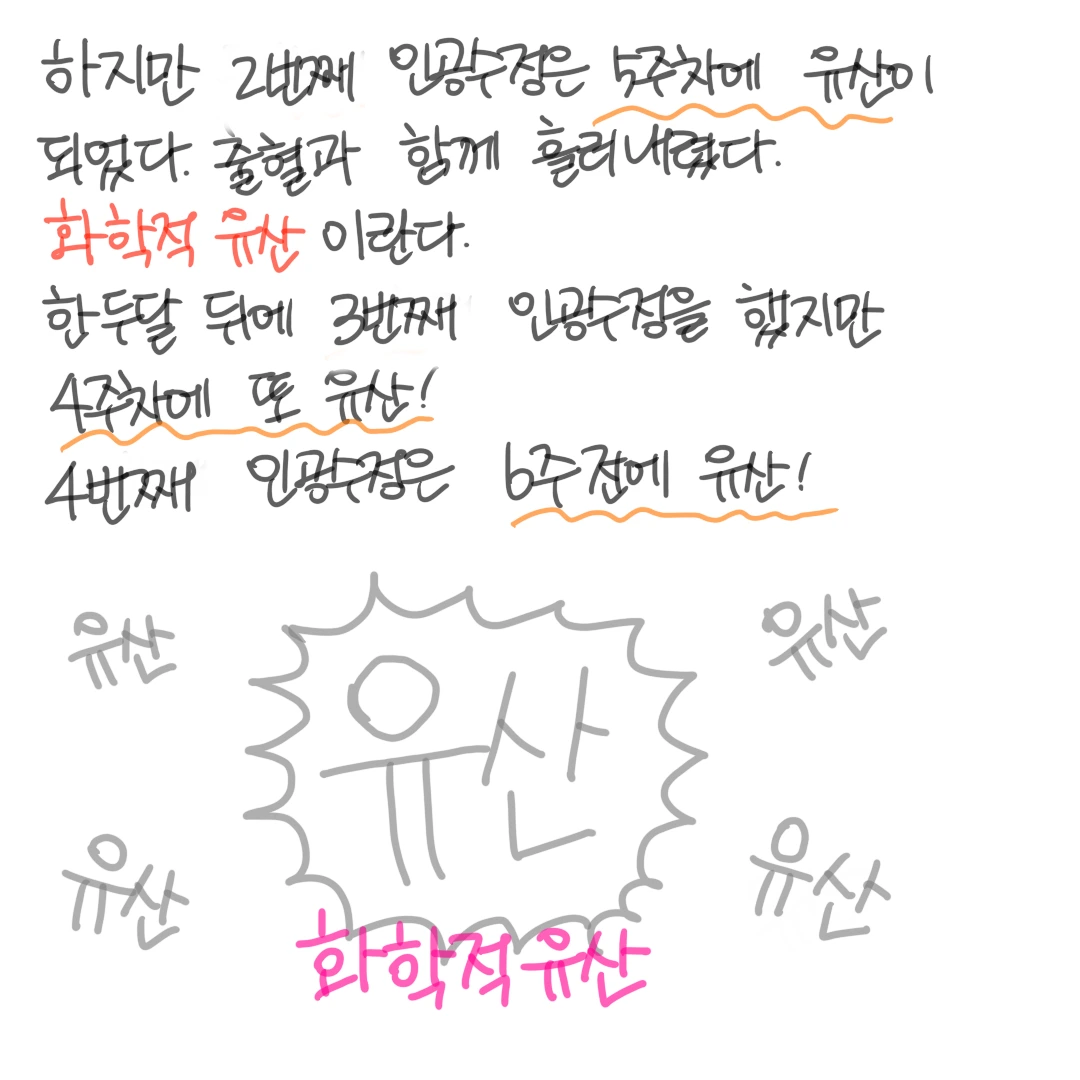 하지만 2번째 인공수정은 5주차에 유산이
되었다. 출혈과 함께 흘러내렸다.
화학적 유산 이란다.
한두달 뒤에 3번째 인공수정을 했지만
4주차에 또 유산!
4번째 인공수정은 6주전에 유산!
유산
유산
유산
유산
유산
화학적유산